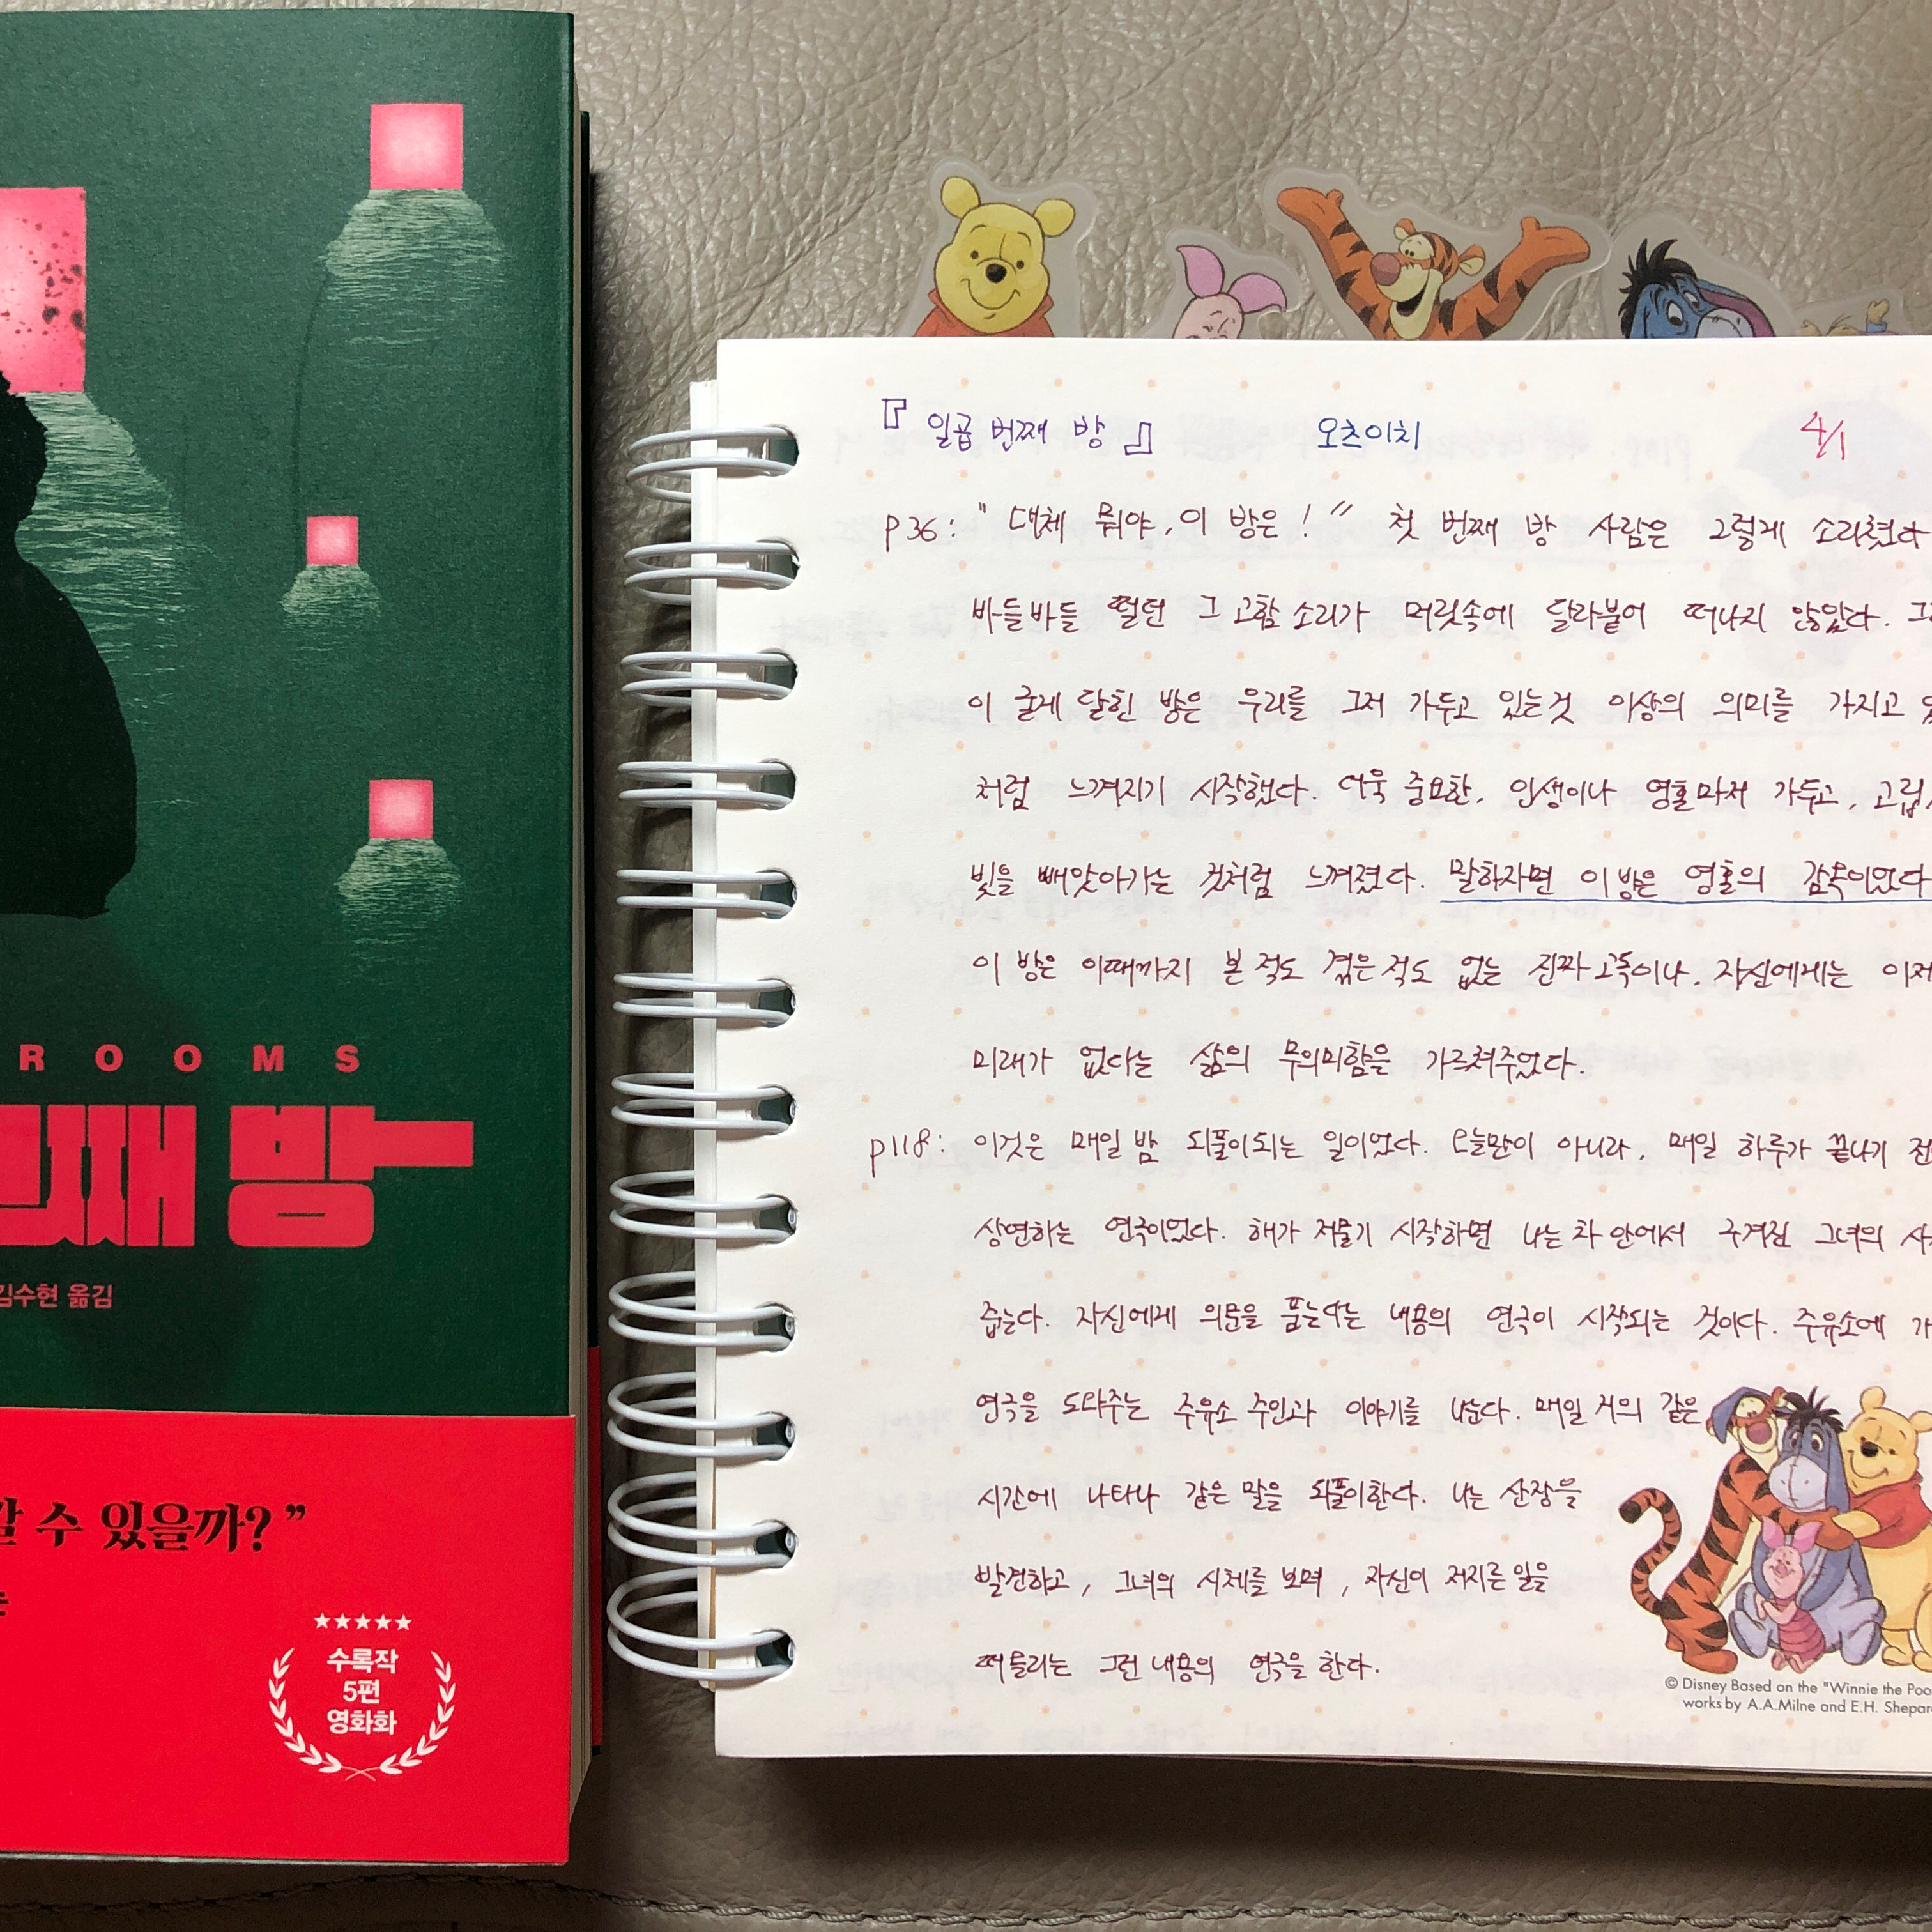 ROOMS
째 방
김수현 옮김
수 있을까?”
수록작
5편
영화화
『일곱 번째 방』 오츠이치 4/1
p36: “대체 뭐야, 이 방은!” 첫 번째 방 사람은 그렇게 소리쳤다
바들바들 떨던 그 고함 소리가 머릿속에 달라붙어 떠나지 않았다.
이 굳게 닫힌 방은 우리를 그저 가두고 있는 것 이상의 의미를 가지고
처럼 느껴지기 시작했다. 더욱 중요한, 인생이나 영혼마저 가두고, 고립
빛을 빼앗아가는 것처럼 느껴졌다. 말하자면 이 방은 영혼의 감옥이었다
이 방은 이때까지 본 적도 겪은 적도 없는 진짜 고독이나, 자신에게는 이제
미래가 없다는 삶의 무의미함을 가르쳐주었다.
p118: 이것은 매일 밤 되풀이되는 일이었다. 오늘만이 아니라, 매일 하루가 끝나기 전
상연하는 연극이었다. 해가 저물기 시작하면 나는 차 안에서 구겨진 그녀의
줍는다. 자신에게 의문을 품는다는 내용의 연극이 시작되는 것이다. 주유소에 가
연극을 도와주는 주유소 주인과 이야기를 나눈다. 매일 거의 같은
시간에 나타나 같은 말을 되풀이한다. 나는 산장을
발견하고, 그녀의 시체를 보며, 자신이 저지른 일을
떠올리는 그런 내용의 연극을 한다.
© Disney Based on the "Winnie the Poo
works by A.A.Milne and E.H. Shepar